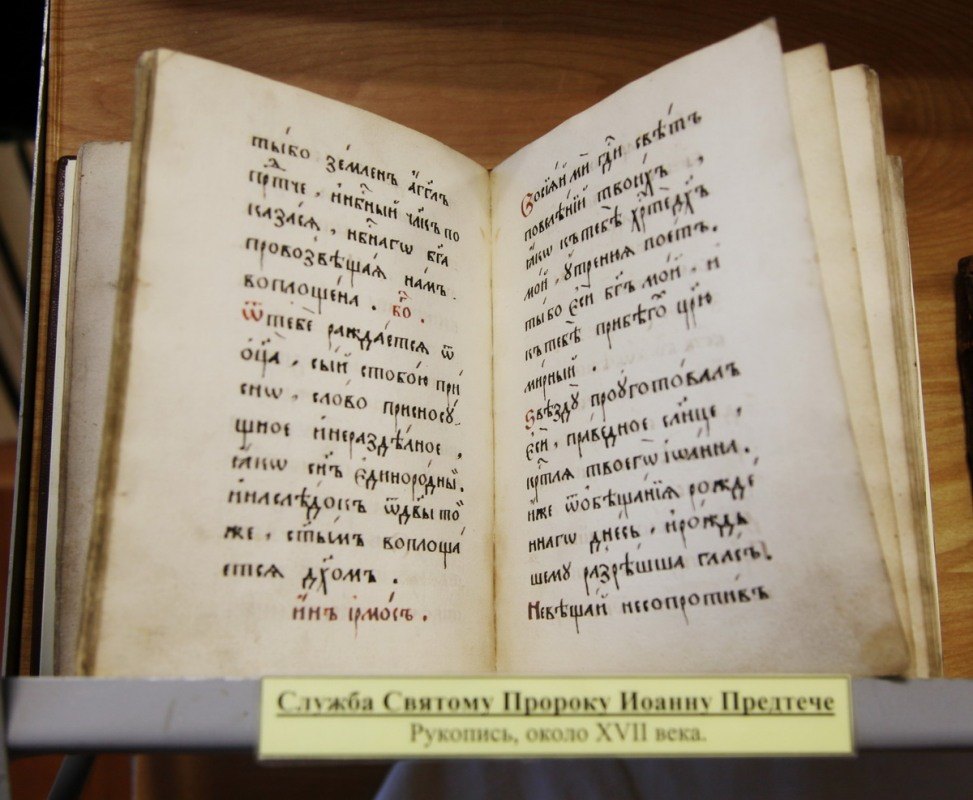 ты́ бо зе́мленъ а҆́гг҃лъ
прⷣтче , и҆ нбⷭ҇ный чл҃къ по
каза́сѧ , нбⷭ҇нагѡ бг҃а
провозвѣща́ѧ на́мъ .
воплоще́на . бо .
Ѿ тебѐ ражда́етсѧ ѿ
о҆ц҃а̀ , сы́й с тобо́ю при
снѡ , сло́во присносу́
щное и҆ нераздѣ́лное ,
ꙗ҆́кѡ сн҃ъ є҆диноро́дный .
и҆ наслѣ́докъ ѿ дв҃ы то́
же , ст҃ы́мъ воплоща́
етсѧ дх҃омъ .
и҆́нъ і҆рмо́съ .
Ѡсїѧ́й мѝ гдⷭ҇и свѣ́тъ
повелѣ́нїй твои́хъ ,
ꙗ҆́кѡ къ тебѣ̀ хрⷭ҇тѐ дх҃ъ
мо́й , у҆́тренѧѧ пое́тъ .
ты́ бо є҆сѝ бг҃ъ мо́й , и
къ тебѣ̀ прибѣго́хъ цр҃ю
ми́рный .
Ѕвѣздꙋ̀ проꙋгото́валъ
є҆сѝ , пра́ведное сл҃нце ,
крⷭ҇тлѧ твоегѡ̀ і҆ѡа́нна .
и҆́же ѿ ѡбѣща́нїѧ рожде́
ннагѡ дне́сь , и҆ ро́ждь
шемꙋ разрѣ́шша гла́съ .
Невѣ́щай несопроти́въ
Служба Святому Пророку Иоанну Предтече
Рукопись, около XVII века.